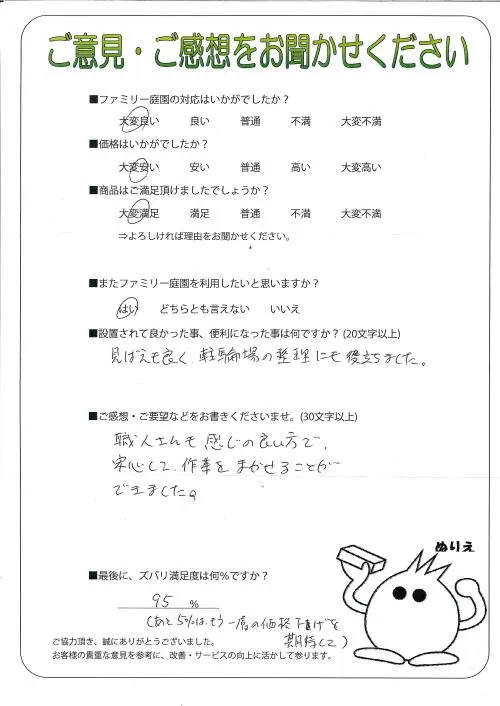 ご意見・ご感想をお聞かせください
■ファミリー庭園の対応はいかがでしたか？
大変良い 良い 普通 不満 大変不満
■価格はいかがでしたか？
大変安い 安い 普通 高い 大変高い
■商品はご満足頂けましたでしょうか？
大変満足 満足 普通 不満 大変不満
⇒よろしければ理由をお聞かせください。
■またファミリー庭園を利用したいと思いますか？
はい どちらとも言えない いいえ
■設置されて良かった事、便利になった事は何ですか？(20文字以上)
見ばえも良く、駐輪場の整理にも役立ちました。
■ご感想・ご要望などをお書きくださいませ。(30文字以上)
職人さんも感じの良い方で、
安心して、作業をまかせることが
できました。
ぬりえ
■最後に、ズバリ満足度は何％ですか？
95 %
(あと5%は、もう一層の価格下げを
期待して)
ご協力頂き、誠にありがとうございました。
お客様の貴重な意見を参考に、改善・サービスの向上に活かして参ります。